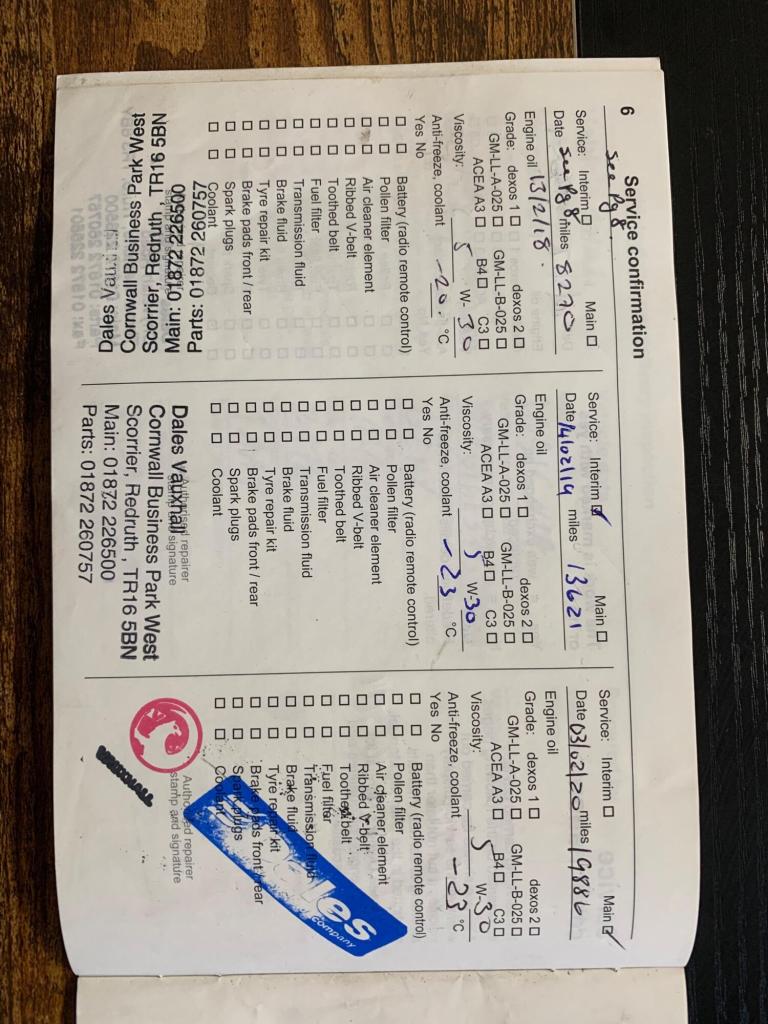 6 Service confirmation
see Pg 8.
Service: Interim ☐ Main ☐
Date see Pg 8 miles 8270
Engine oil 13/2/18.
Grade: dexos 1 ☐ dexos 2 ☐
GM-LL-A-025 ☐ GM-LL-B-025 ☐
ACEA A3 ☐ B4 ☐ C3 ☐
Viscosity: 5 W- 30
Anti-freeze, coolant -20. °C
Yes No
☐ ☐ Battery (radio remote control)
☐ ☐ Pollen filter
☐ ☐ Air cleaner element
☐ ☐ Ribbed V-belt
☐ ☐ Toothed belt
☐ ☐ Fuel filter
☐ ☐ Transmission fluid
☐ ☐ Brake fluid
☐ ☐ Tyre repair kit
☐ ☐ Brake pads front / rear
☐ ☐ Spark plugs
☐ ☐ Coolant
Dales Vauxhall
Cornwall Business Park West
Scorrier, Redruth, TR16 5BN
Main: 01872 226500
Parts: 01872 260757
Service: Interim ☑ Main ☐
Date 14/02/19 miles 13621
Engine oil
Grade: dexos 1 ☐ dexos 2 ☐
GM-LL-A-025 ☐ GM-LL-B-025 ☐
ACEA A3 ☐ B4 ☐ C3 ☐
Viscosity: 5 W-30
Anti-freeze, coolant -23 °C
Yes No
☐ ☐ Battery (radio remote control)
☐ ☐ Pollen filter
☐ ☐ Air cleaner element
☐ ☐ Ribbed V-belt
☐ ☐ Toothed belt
☐ ☐ Fuel filter
☐ ☐ Transmission fluid
☐ ☐ Brake fluid
☐ ☐ Tyre repair kit
☐ ☐ Brake pads front / rear
☐ ☐ Spark plugs
☐ ☐ Coolant
Authorised repairer
signature
Dales Vauxhall
Cornwall Business Park West
Scorrier, Redruth , TR16 5BN
Main: 01872 226500
Parts: 01872 260757
Service: Interim ☐ Main ☑
Date 03/02/20 miles 19886
Engine oil
Grade: dexos 1 ☐ dexos 2 ☐
GM-LL-A-025 ☐ GM-LL-B-025 ☐
ACEA A3 ☐ B4 ☐ C3 ☐
Viscosity: 5 W-30
Anti-freeze, coolant -23 °C
Yes No
☐ ☐ Battery (radio remote control)
☐ ☐ Pollen filter
☐ ☐ Air cleaner element
☐ ☐ Ribbed V-belt
☐ ☐ Toothed belt
☐ ☐ Fuel filter
☐ ☐ Transmission fluid
☐ ☐ Brake fluid
☐ ☐ Tyre repair kit
☐ ☐ Brake pads front / rear
☐ ☐ Spark plugs
☐ ☐ Coolant
Authorised repairer
stamp and signature
company